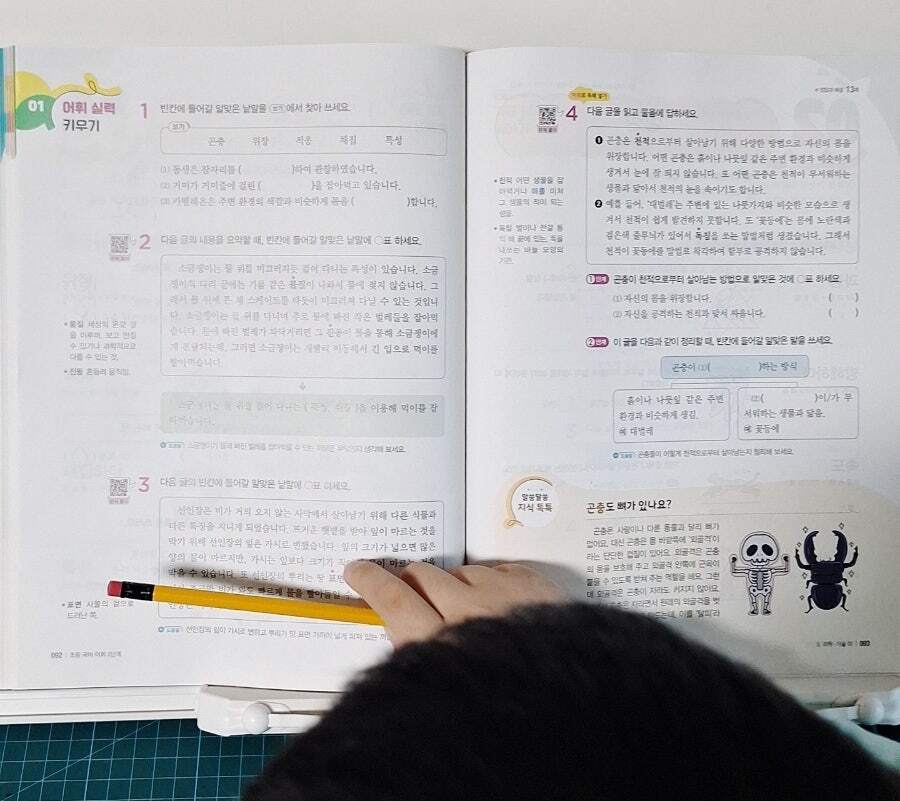 01
어휘 실력
키우기
1 빈칸에 들어갈 알맞은 낱말을 보기 에서 찾아 쓰세요.
보기
곤충 위장 적응 채집 특성
(1) 동생은 잠자리를 ( )하여 관찰하였습니다.
(2) 거미가 거미줄에 걸린 ( )을 잡아먹고 있습니다.
(3) 카멜레온은 주변 환경의 색깔과 비슷하게 몸을 ( )합니다.
2 다음 글의 내용을 요약할 때, 빈칸에 들어갈 알맞은 낱말에 ○표 하세요.
소금쟁이는 물 위를 미끄러지듯 걸어 다니는 특성이 있습니다. 소금
쟁이의 다리 끝에는 기름 같은 물질이 나와서 물에 젖지 않습니다. 그
래서 물 위에 뜬 채 스케이트를 타듯이 미끄러져 다닐 수 있는 것입니
다. 소금쟁이는 물 위를 다니며 주로 물에 빠진 작은 벌레들을 잡아먹
습니다. 물에 빠진 벌레가 파닥거리면 그 진동이 물을 통해 소금쟁이에
게 전달되는데, 그러면 소금쟁이는 재빨리 이동해서 긴 입으로 먹이를
빨아먹습니다.
물질 세상의 온갖 것
을 이루며, 보고 만질
수 있거나 과학적으로
다룰 수 있는 것.
진동 흔들려 움직임.
↓
소금쟁이는 물 위를 걸어 다니는 ( 특성, 위장 )을 이용해 먹이를 잡
아먹습니다.
도움말 소금쟁이가 물에 빠진 벌레를 잡아먹을 수 있는 까닭은 무엇인지 생각해 보세요.
3 다음 글의 빈칸에 들어갈 알맞은 낱말에 ○표 하세요.
선인장은 비가 거의 오지 않는 사막에서 살아남기 위해 다른 식물과
다른 특징을 지니게 되었습니다. 뜨거운 햇볕을 받아 잎이 마르는 것을
막기 위해 선인장의 잎은 가시로 변했습니다. 잎의 크기가 넓으면 많은
양의 물이 마르지만, 가시는 잎보다 크기가 마르는 것을
막을 수 있습니다. 또 선인장의 뿌리는 땅 표면
표면 사물의 겉으로
드러난 쪽.
도움말 선인장의 잎이 가시로 변하고 뿌리가 땅 표면 가까이 넓게 퍼져 있는
092 초등 국어 어휘 2단계
13회
어휘로 독해 열기
4 다음 글을 읽고 물음에 답하세요.
❶ 곤충은 천적으로부터 살아남기 위해 다양한 방법으로 자신의 몸을
위장합니다. 어떤 곤충은 흙이나 나뭇잎 같은 주변 환경과 비슷하게
생겨서 눈에 잘 띄지 않습니다. 또 어떤 곤충은 천적이 무서워하는
생물과 닮아서 천적의 눈을 속이기도 합니다.
❷ 예를 들어, '대벌레'는 주변에 있는 나뭇가지와 비슷한 모습으로 생
겨서 천적이 쉽게 발견하지 못합니다. 또 '꽃등에'는 몸에 노란색과
검은색 줄무늬가 있어서 독침을 쏘는 말벌처럼 생겼습니다. 그래서
천적이 꽃등에를 말벌로 착각하여 함부로 공격하지 않습니다.
천적 어떤 생물을 잡
아먹거나 해를 미쳐
그 생물의 적이 되는
생물.
독침 벌이나 전갈 등
의 배 끝에 있는, 독을
내쏘는 바늘 모양의
기관.
1단계 곤충이 천적으로부터 살아남는 방법으로 알맞은 것에 ○표 하세요.
(1) 자신의 몸을 위장합니다. ( )
(2) 자신을 공격하는 천적과 맞서 싸웁니다. ( )
2단계 이 글을 다음과 같이 정리할 때, 빈칸에 들어갈 알맞은 말을 쓰세요.
곤충이 (1)( )하는 방식
흙이나 나뭇잎 같은 주변
환경과 비슷하게 생김.
예 대벌레
(2)( )이/가 무
서워하는 생물과 닮음.
예 꽃등에
도움말 곤충들이 어떻게 천적으로부터 살아남는지 정리해 보세요.
알쏭달쏭
지식 톡톡
곤충도 뼈가 있나요?
곤충은 사람이나 다른 동물과 달리 뼈가
없어요. 대신 곤충은 몸 바깥쪽에 '외골격'이
라는 단단한 껍질이 있어요. 외골격은 곤충
의 몸을 보호해 주고 외골격 안쪽에 근육이
붙을 수 있도록 받쳐 주는 역할을 해요. 그런
데 외골격은 곤충이 자라도 커지지 않아요.
곤충은 자라면서 원래의 외골격을 벗
이를 '탈피'라
093